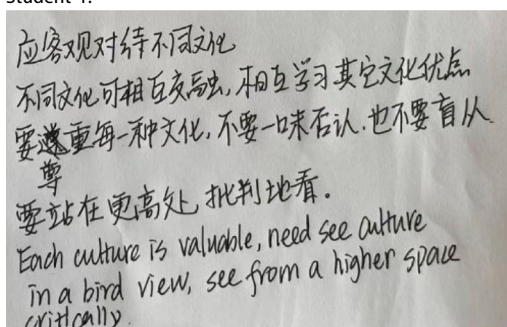 应客观对待不同文化
不同文化可相互交融,相互学习其它文化优点
要重每一种文化,不要一味否认.也不要盲从
尊
要站在更高处,批判地看。
Each culture is valuable, need see culture
in a bird view, see from a higher space
critically.